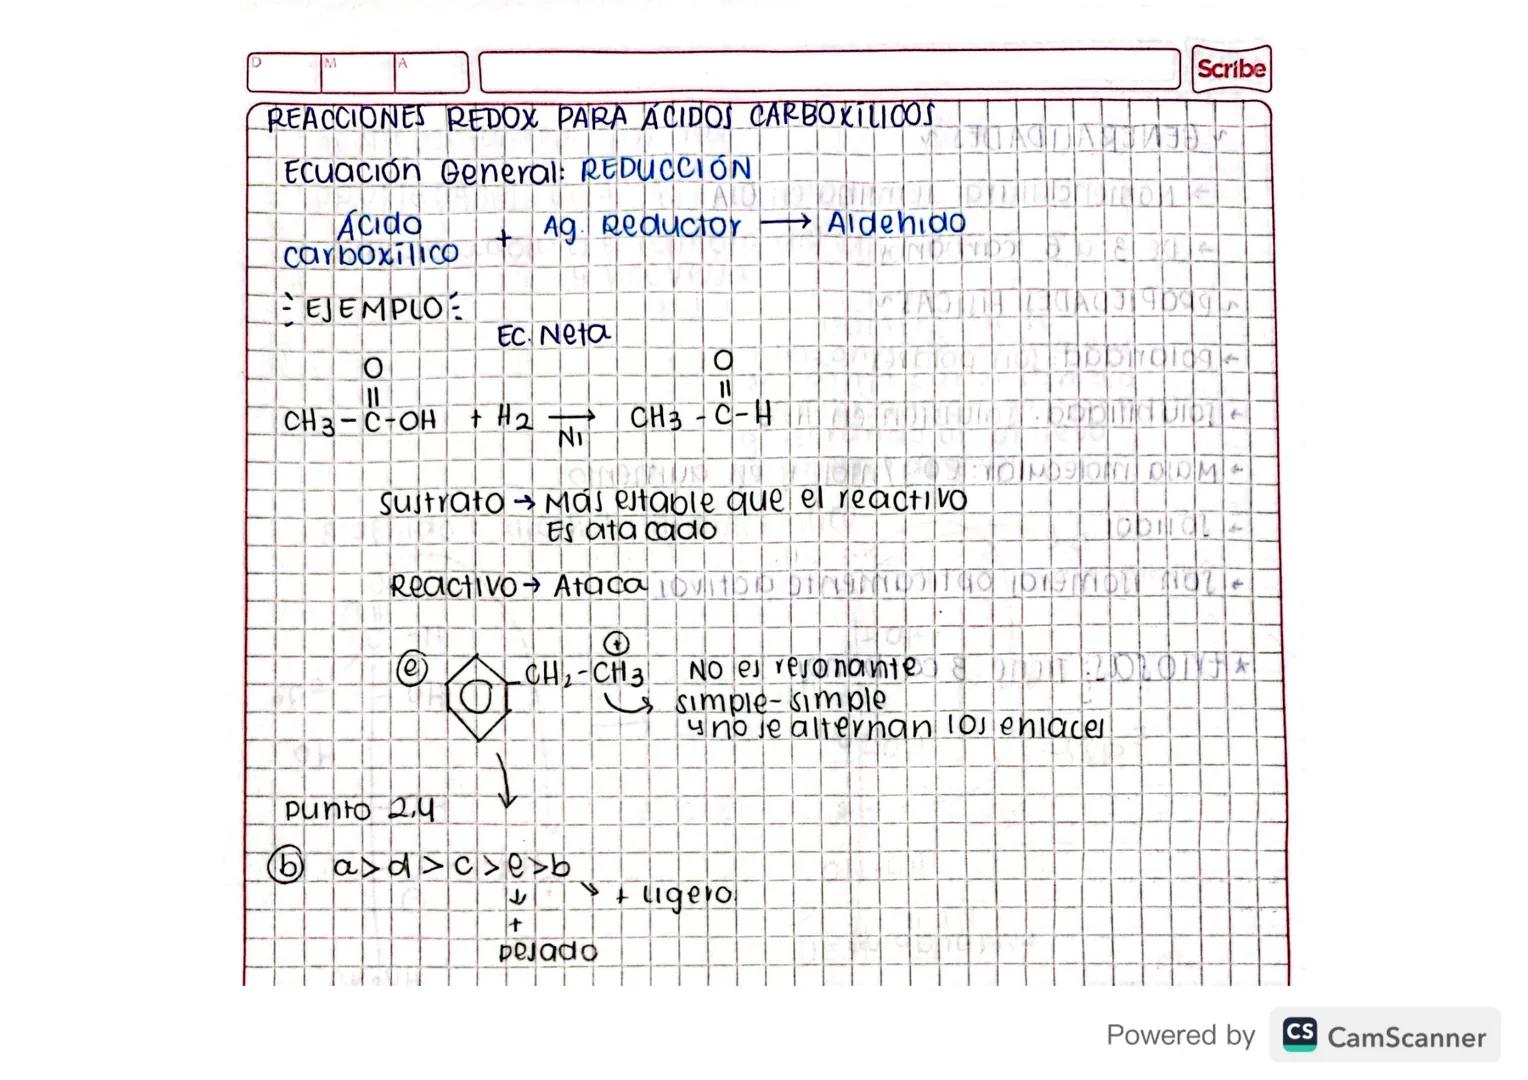 D M A
Scribe
REACCIONES REDOX PARA ÁCIDOS CARBOXÍLICOS
Ecuación General: REDUCCIÓN
Ácido carboxílico + Ag. Reductor → Aldehido
EJEMPLO
EC. Neta
O O
|| ||
CH3-C-OH + H2 → CH3-C-H
Ni
sustrato → Más estable que el reactivo
Es atacado
Reactivo → Ataca
+
e CH2-CH3 No es resonante
simple-simple
y no se alternan los enlaces
punto 2.4
b a>d>c>e>b
↓ ↘ + ligero
+
pesado
Powered by CS CamScanner